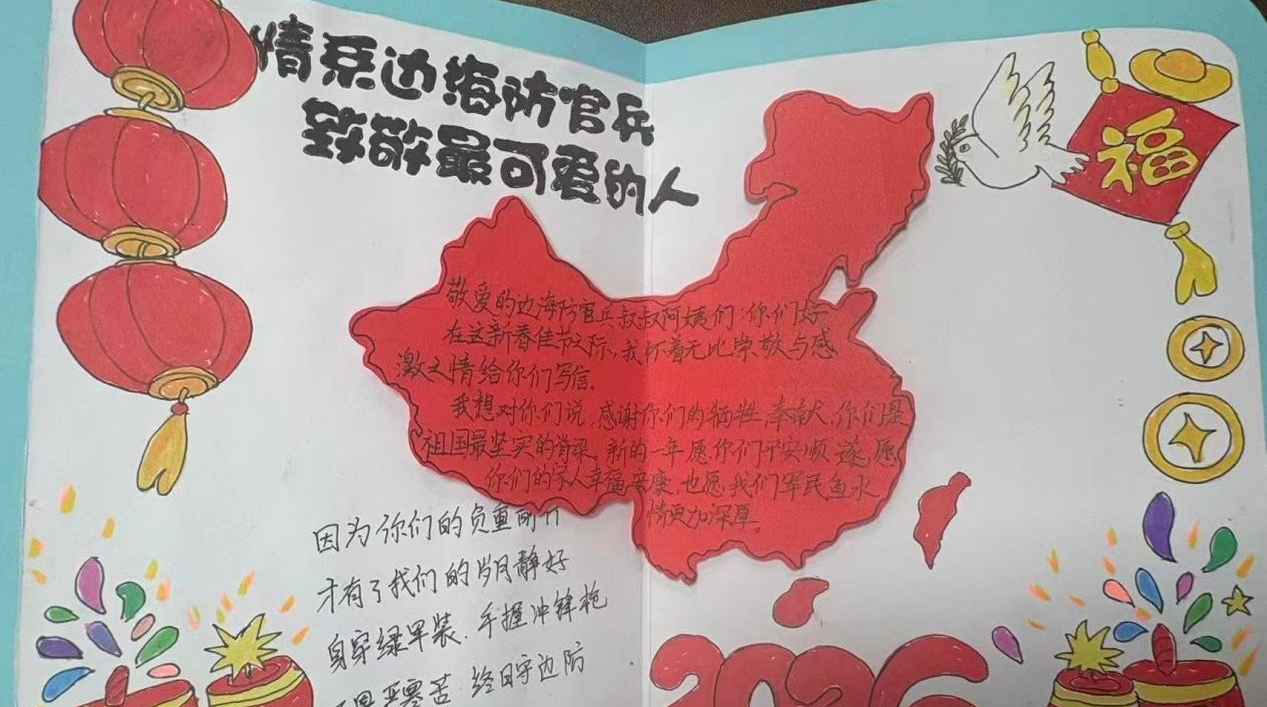 情系边海防官兵
致敬最可爱的人
福
敬爱的边海防官兵叔叔阿姨们:你们好
在这新春佳节之际,我怀着无比崇敬与感
激之情给你们写信。
我想对你们说,感谢你们的牺牲,奉献,你们是
祖国最坚实的脊梁。新的一年愿你们平安顺遂,愿
你们的家人幸福安康,也愿我们军民鱼水
情更加深厚。
因为你们的负重前行
才有了我们的岁月静好
身穿绿军装.手握冲锋枪
严寒苦.终日守边防
2026